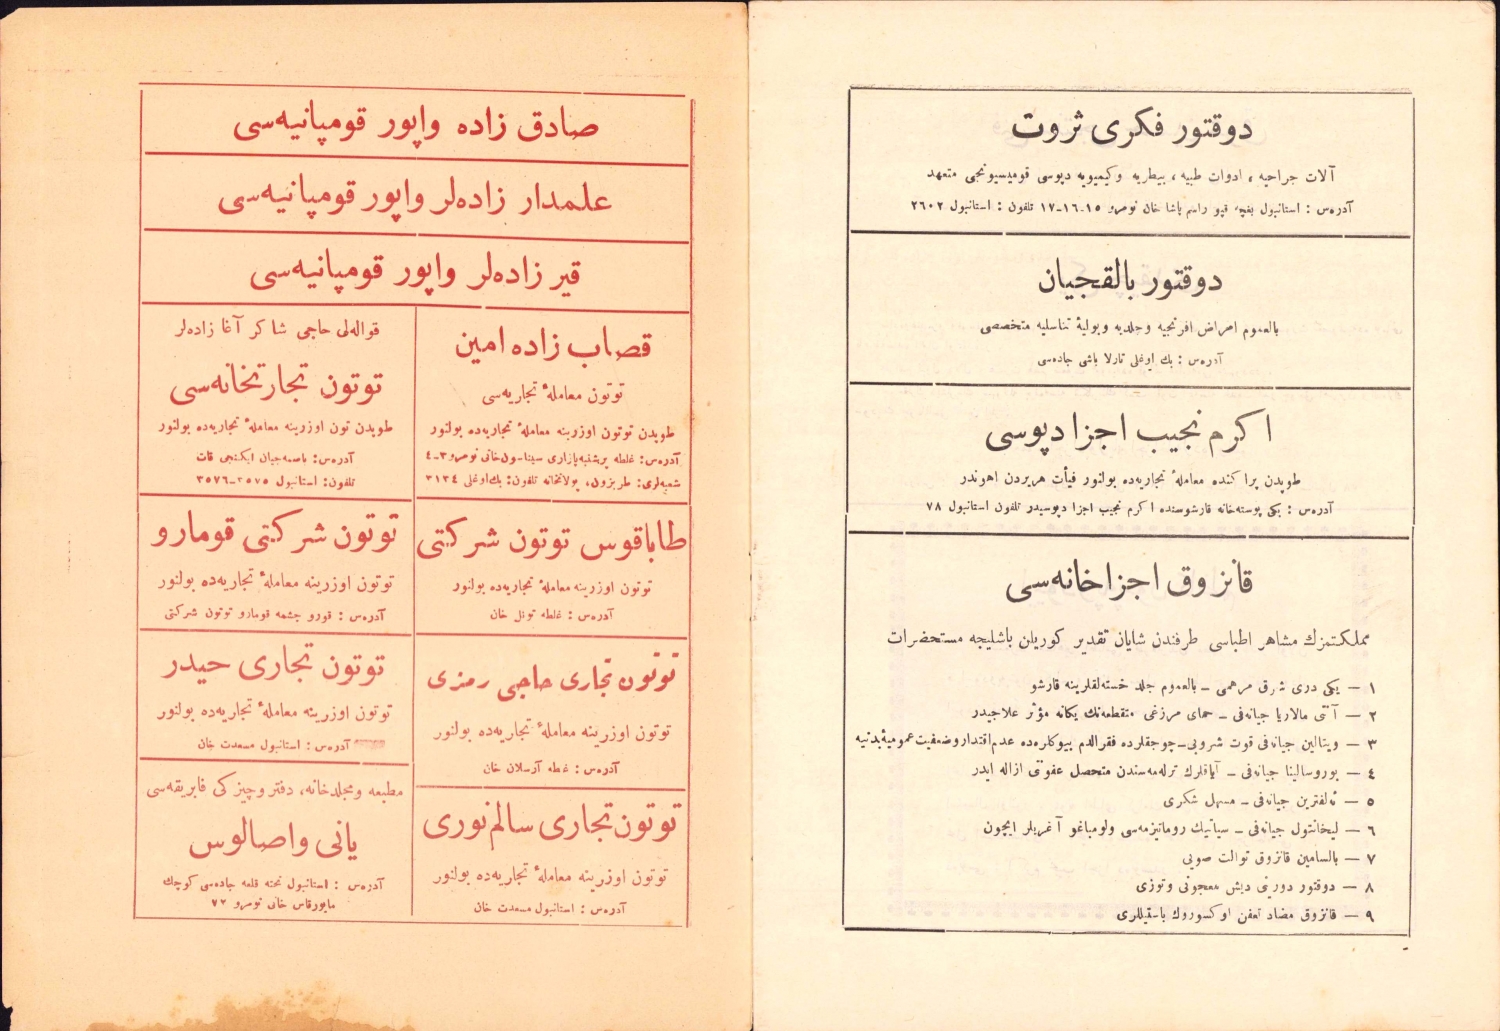 دوقتور فكری ثروت
آلات جراحیه ، ادوات طبیه ، بیطریه وكیمیویه دپوسی قومیسیونجی متعهد
آدره‌س : استانبول بغچه قپو راسم پاشا خان نومرو ١٥-١٦-١٧ تلفون : استانبول ٢٦٠٢
دوقتور بالقجیان
بالعموم امراض افرنجیه وجلدیه وبولیهٔ تناسلیه متخصصی
آدره‌س : بك اوغلی تارلا باشی جاده‌سی
اكرم نجیب اجزا دپوسی
طوپدن پراكنده معاملهٔ تجاریه‌ده بولنور فیأت هریردن اهوندر
آدره‌س : یكی پوسته‌خانه قارشوسنده اكرم نجیب اجزا دپوسیدر تلفون استانبول ٧٨
قانزوق اجزاخانه‌سی
مملكتمزك مشاهر اطباسی طرفندن شایان تقدیر كوریلن باشلیجه مستحضرات
١ — یكی دری شرق مرهمی – بالعموم جلد خسته‌لقلرینه قارشو
٢ — آنتی مالاریا جیانه‌فی – حمای مرزغی متقطعه‌نك یكانه مؤثر علاجیدر
٣ — ویتالین جیانه‌فی قوت شروبی – چوجقلرده فقرالدم بیوكلرده‌ عدم اقتدار وضعفیت عمومیهٔ بدنیه
٤ — بوروسالینا جیانه‌فی – آیاقلرك ترله‌مه‌سندن متحصل عفونتی ازاله ایدر
٥ — ئه‌لفترین جیانه‌فی – مسهل شكری
٦ — لیخانتول جیانه‌فی – سیاتیك روماتیزمه‌سی ولومباغو آغریلر ایچون
٧ — بالسامین قانزوق توالت صویی
٨ — دوقتور دورنی دیش معجونی وتوزی
٩ — قانزوق مضاد تعفن اوكسوروك پاستیللری
صادق زاده واپور قومپانیه‌سی
علمدار زاده‌لر واپور قومپانیه‌سی
قیر زاده‌لر واپور قومپانیه‌سی
قصاب زاده امین
توتون معاملهٔ تجاریه‌سی
طوپدن توتون اوزرینه معاملهٔ تجاریه‌ده بولنور
آدره‌س: غلطه پرشنبه‌پازاری خانی نومرو ٣-٤
شعبه‌لری: طربزون، پولاتخانه تلفون: بك‌اوغلی ٣١٣٤
طاباقوس توتون شركتی
توتون اوزرینه معاملهٔ تجاریه‌ده بولنور
آدره‌س : غلطه خان
توتون تجاری حاجی رمزی
توتون اوزرینه معاملهٔ تجاریه‌ده بولنور
آدره‌س : غلطه آرسلان خان
توتون تجاری سالم نوری
توتون اوزرینه معاملهٔ تجاریه‌ده بولنور
آدره‌س : استانبول مسعدت خان
قواله‌لی حاجی شاكر آغا زاده‌لر
توتون تجارتخانه‌سی
طوپدن تون اوزرینه معاملهٔ تجاریه‌ده بولنور
آدره‌س: باسمه‌جیان ایكنجی قات
تلفون: استانبول ٣٥٧٥-٣٥٧٦
توتون شركتی قومارو
توتون اوزرینه معاملهٔ تجاریه‌ده بولنور
آدره‌س : قورو چشمه قومارو توتون شركتی
توتون تجاری حیدر
توتون اوزرینه معاملهٔ تجاریه‌ده بولنور
آدره‌س : استانبول مسعدت خان
مطبعه ومجلدخانه، دفتر وچیزكی فابریقه‌سی
یانی واصالوس
آدره‌س : استانبول تخته قلعه جاده‌سی كوچك
خانی نومرو ٧٢